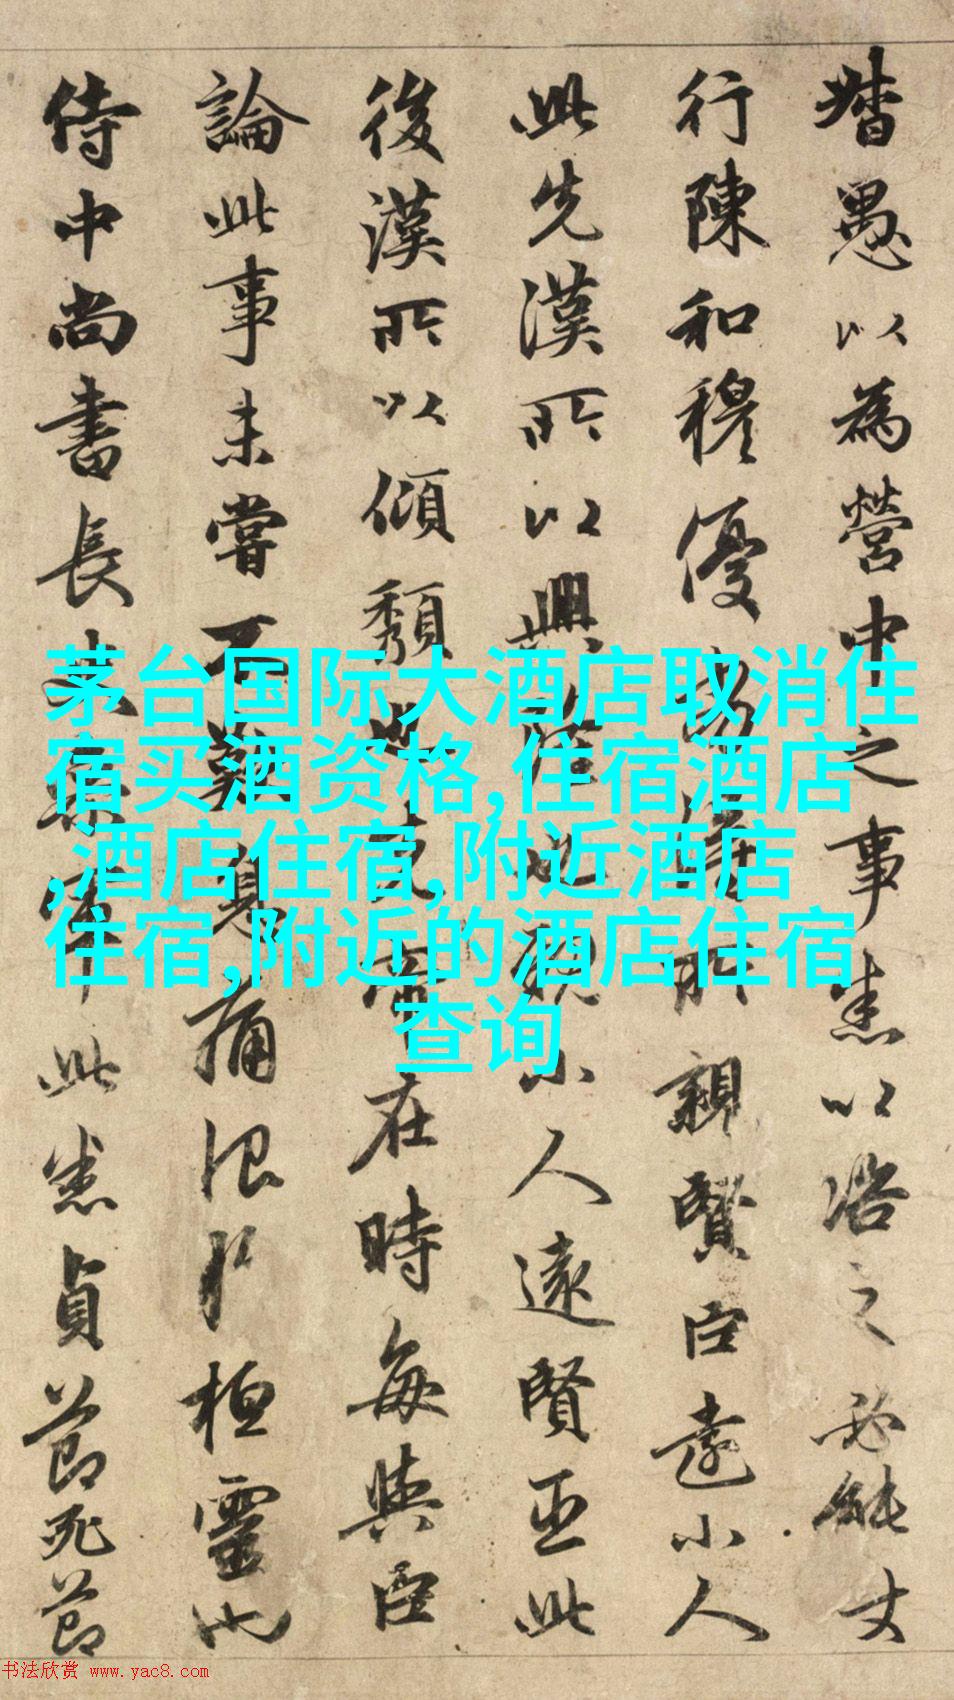 督愚以為營中之事悉以咨之必能使
行陳和穆優劣得所親賢臣遠小人
此先漢所以興隆也親小人遠賢臣此
後漢所以傾頹也先帝在時每與臣
論此事未嘗不歎息痛恨於桓靈也
侍中尚書長史參軍此悉貞節死節
茅台国际大酒店取消住
宿买酒资格,住宿酒店
,酒店住宿,附近酒店
住宿,附近的酒店住宿
查询
书法欣赏 www.yac8.com